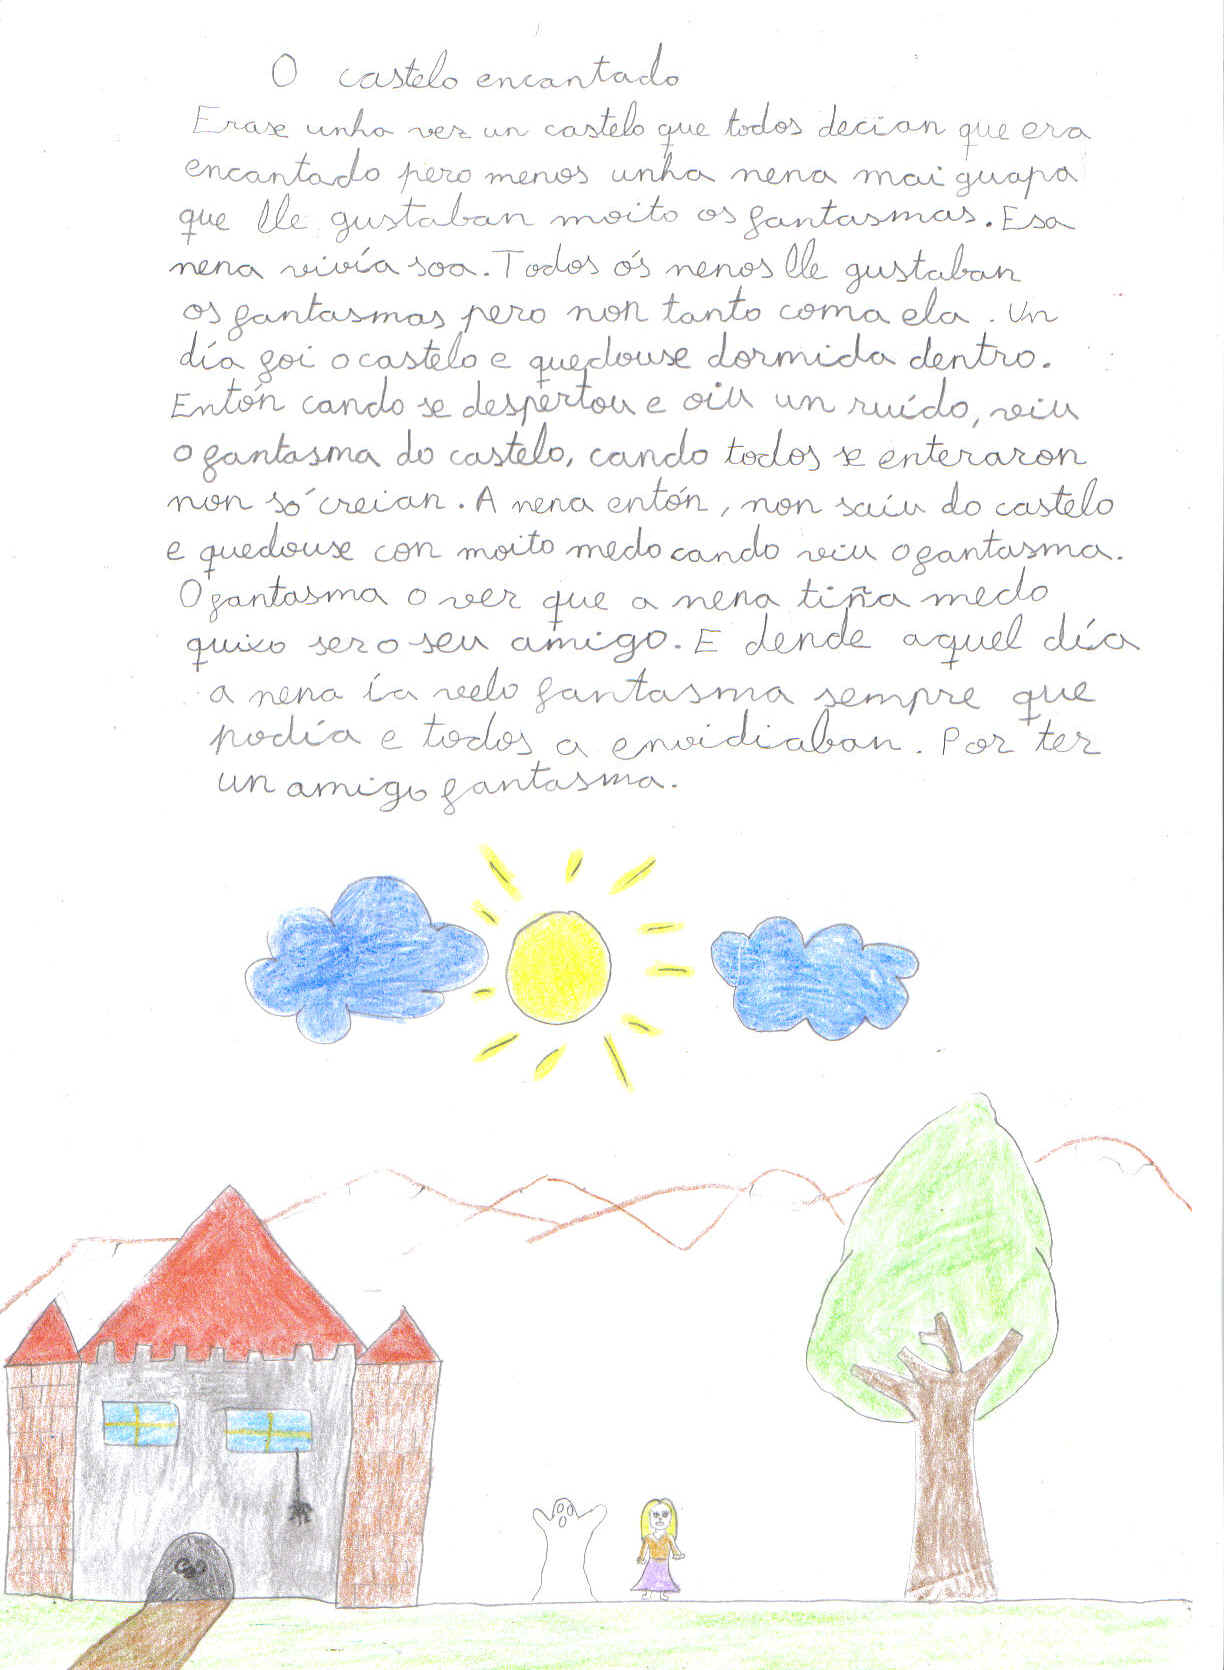 O castelo encantado
Erase unha vez un castelo que todos decian que era
encantado pero menos unha nena mai guapa
que lle gustaban moito os fantasmas. Esa
nena vivía soa. Todos ós nenos lle gustaban
os fantasmas pero non tanto coma ela. Un
día foi o castelo e quedouse dormida dentro.
Entón cando se despertou e oiu un ruído, viu
o fantasma do castelo, cando todos se enteraron
non só creian. A nena entón, non saíu do castelo
e quedouse con moito medo cando viu o fantasma.
O fantasma o ver que a nena tiña medo
quixo ser o seu amigo. E dende aquel día
a nena ía velo fantasma sempre que
podía e todos a envidiaban. Por ter
un amigo fantasma.